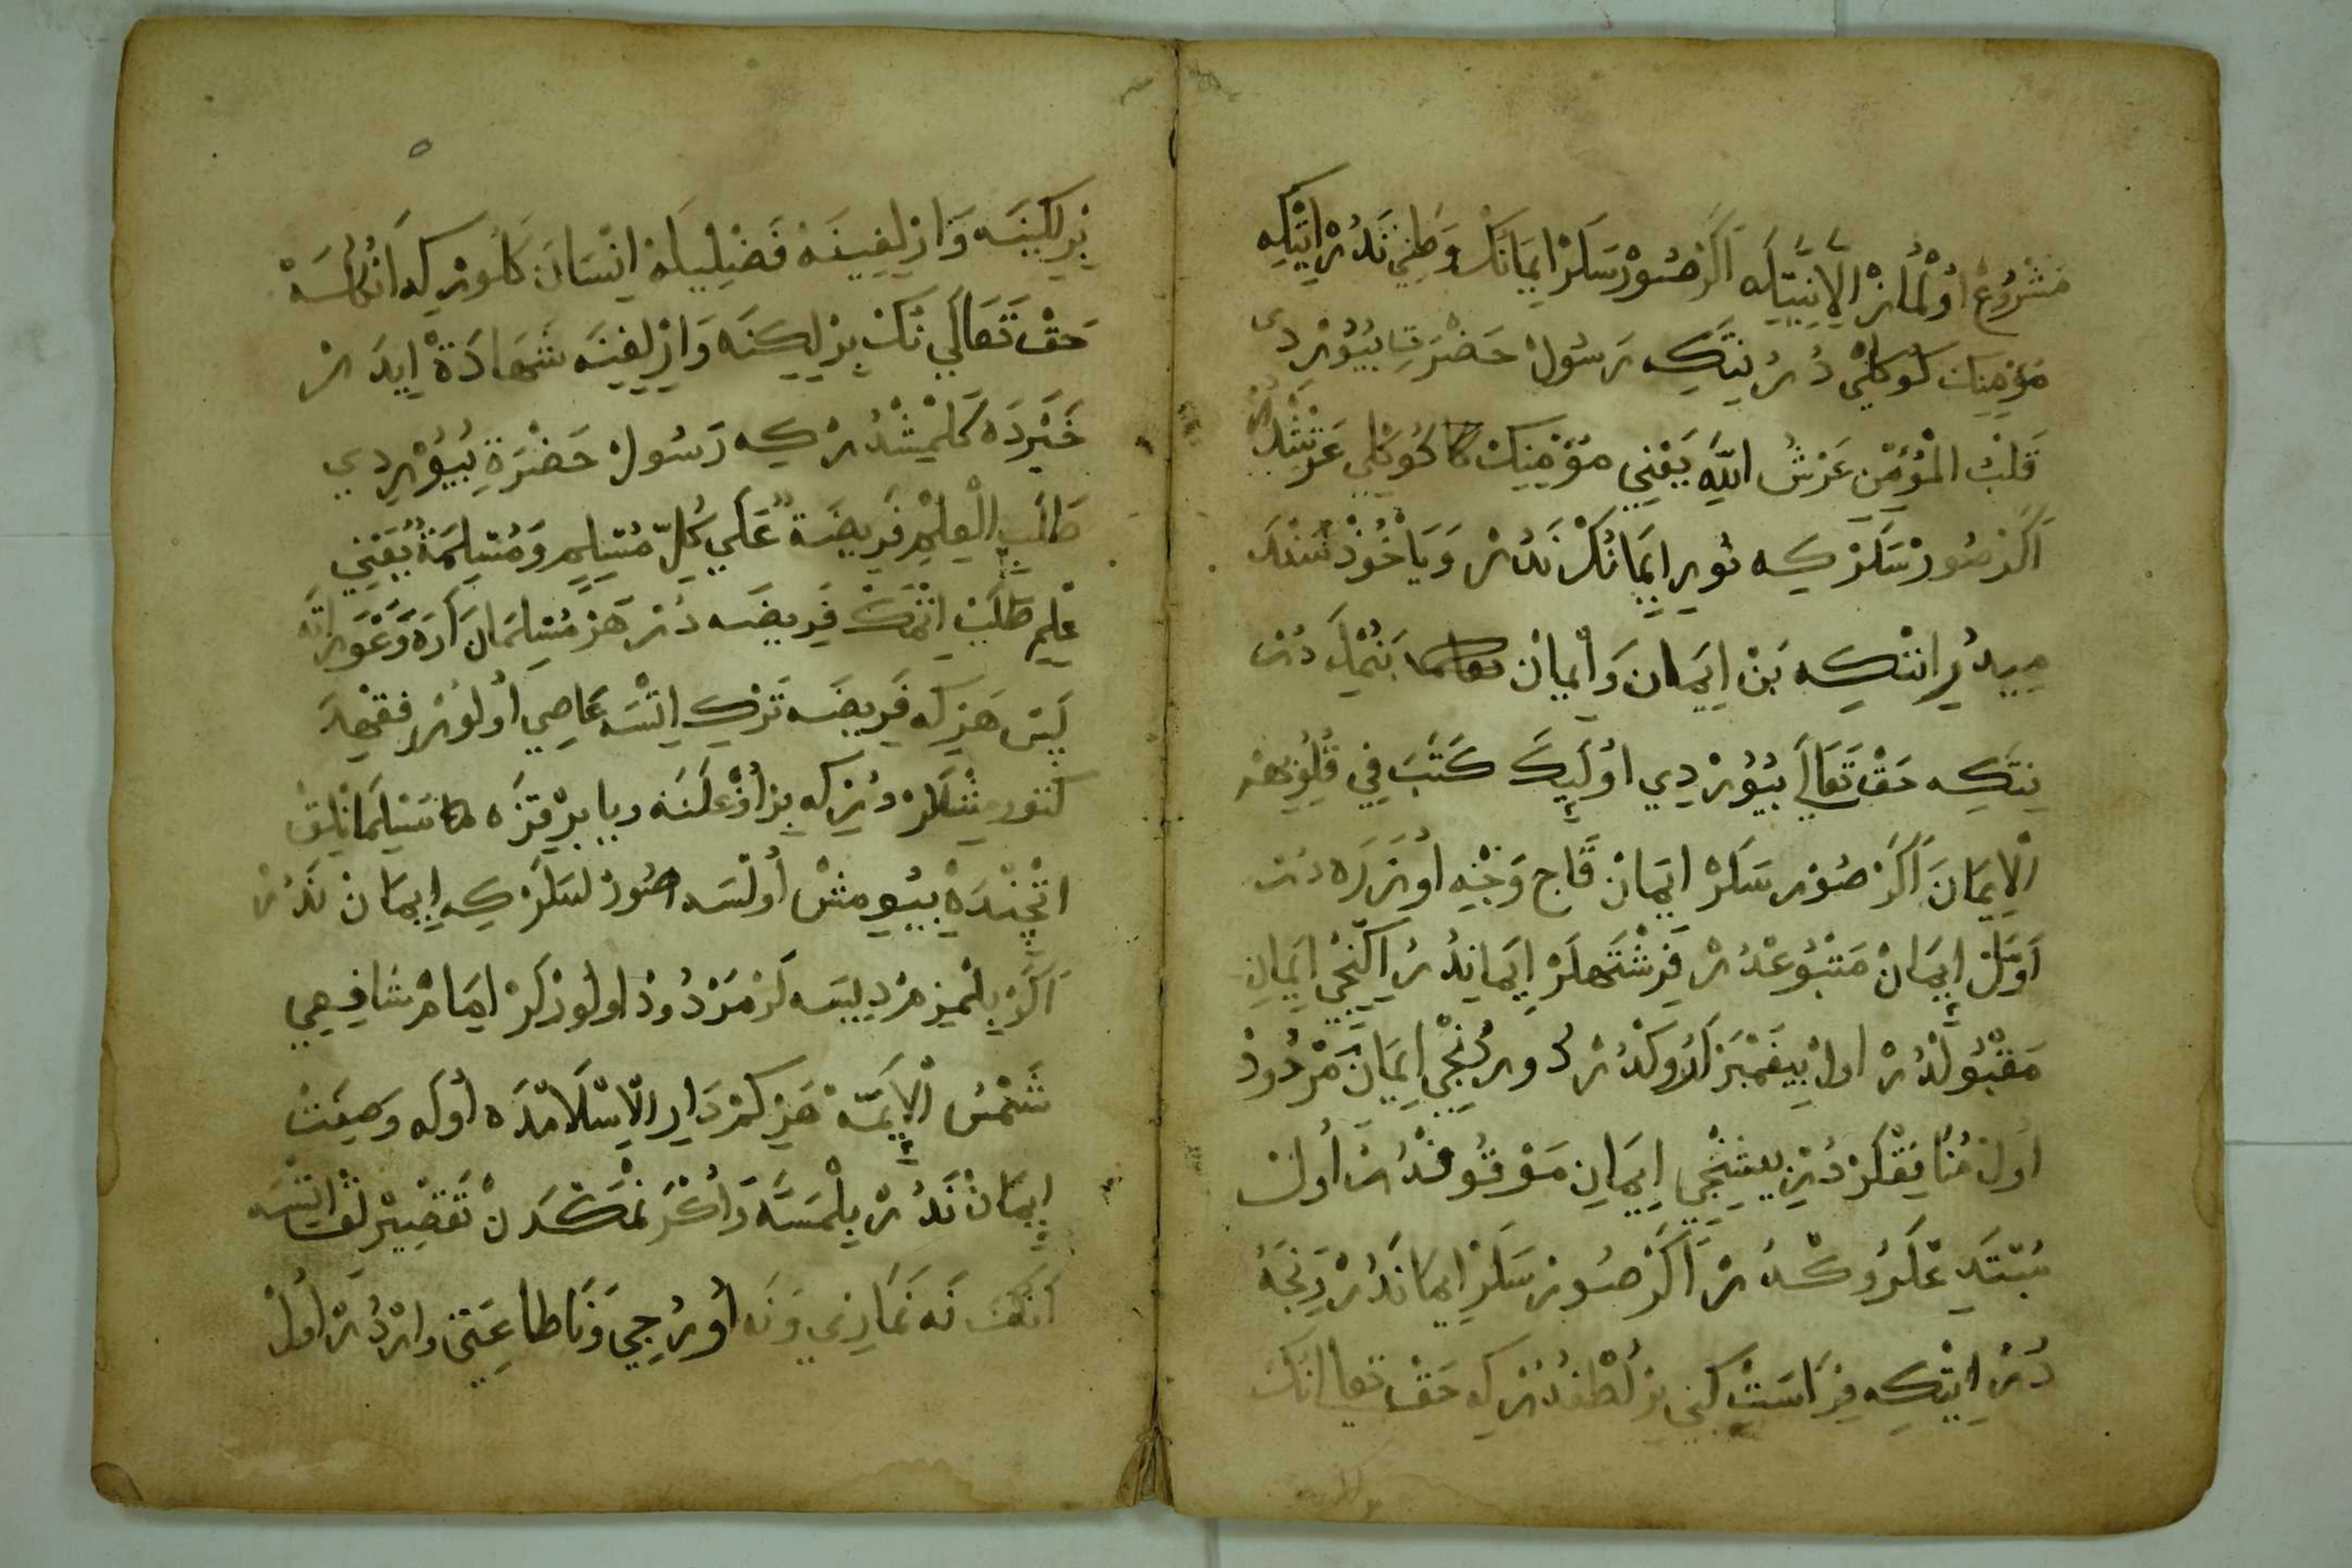 مَشْرُوعْ اوُلْمَازْ اِلاَّ نِيَّتِلَه اَكَرْ صُورْسَلَرْ اِيمَانُكْ وَطَنِي نَدُرْ اَيِتْكِه
مُؤمِنِكْ كُوكْلِي دُرْ نِتَكِه رَسُولْ حَضْرَتِ بُيُوْرْدِى
قَلْبُ الْمُؤْمِنِ عَرْشُ اللهِ يَعْنِي مُؤمِنِكْ كُوكْلِي عَرْشْدُرْ
اَكَرْ صُورْسَلَرْ كِه نُورِ اِيمَانُكْ نَدُرْ وَيَاخُوذْ سَنْدَه
مِيدُرْ اَيِتْكِه بَنْ اِيمَانْ وَاِيمَانْ بَنُمْلَه دُرْ
نِتَكِه حَقْ تَعَالَى بُيُوْرْدِي اوُلَئِكَ كَتَبَ فِي قُلُوبِهِمْ
اْلاِيمَانَ اَكَرْ صُورْسَلَرْ اِيمَانْ قَاچْ وَجْهِ اوُزَرَه دُرْ
اَوَّلْ اِيمَانْ مَتْبُوعْدُرْ فَرِشْتَهلَرْ اِيمَانِدُرْ اِكِّنْجِي اِيمَانِ
مَقْبُولْدُرْ اولْ پَيغَمْبَرْلَرُوكْدُرْ دُورْدُنْجِي اِيمَانْ مَرْدُودْ
اُولْ مُنَافِقْلَرْ دُرْ بِشِنْجِي اِيمَانِ مَوْقُوفْدُرْ اُولْ
مُبْتَدِعْلَرُوكْدُرْ اَكَرْ صُورْسَلَرْ اِيمَانْ نَدُرْ نِجَه
دُرْ اَيِتْكِه فِرَاسَتْ كِبِي بِرْ لُطْفْدُرْ كِه حَقْ تَعَالَى انُكْ
بِرْلِكِنَه وَازْلِغِينَه فَضْلِيلَه اِنْسَانَ كَلُورْ كِه اَنُكْلَه
حَقْ تَعَالَي نُكْ بِرْلِكِنَه وَازْلِغِينَه شَهَادَةْ اِيدَرْ
خَبَرْدَه كَلْمِشْدُرْ كِه رَسُولْ حَضْرَةِ بُيُوْرْدِي
طَلَبُ الْعِلْمِ فَرِيضَةٌ عَلَي كُلِّ مُسْلِمٍ وَمُسْلِمَةٍ يَعْنِي
عِلْمِ طَلَبْ اتْمَكْ فَرِيضَه دُرْ هَرْ مُسْلِمَانْ اَرَه وَعَوْرَتَه
پَسْ هَرْ كِه فَرِيضَه تَرْكِ اِتْسَه عَاصِي اُولُورْ فِقْهْدَه
كَتُورْمِشْلَرْدُرْ كِه بِرْ اوُغْلَنَه ويا بِرْ قِزَه مُسْلِمَانْلِقْ
اِچِنْدَه بُيُومِشْ اُولْسَه صُورْسَلَرْ كِه اِيمَانْ نَدُرْ
اَكَرْ بِلْمِيزِمْ دِيسَه لَرْ مَرْدُودْ اولُورْلَرْ اِمَامْ شَافِعِي
شَمْسُ اْلاَئِمَّه هَرْ كِمْ دَارِ اْلاِسْلاَمْدَه اُولَه وَصِفَتْ
اِيمَانْ نَدُرْ بِلْمَسَه وَاُكْرَنْمَكْدَنْ تَقْصِيرْلِقْ اِتْسَه
اَنُكْ نَه نَمَازِي وَنَه اوُرُجِي وَنَه طَاعَتِي وَارْدُرْ اُولْ